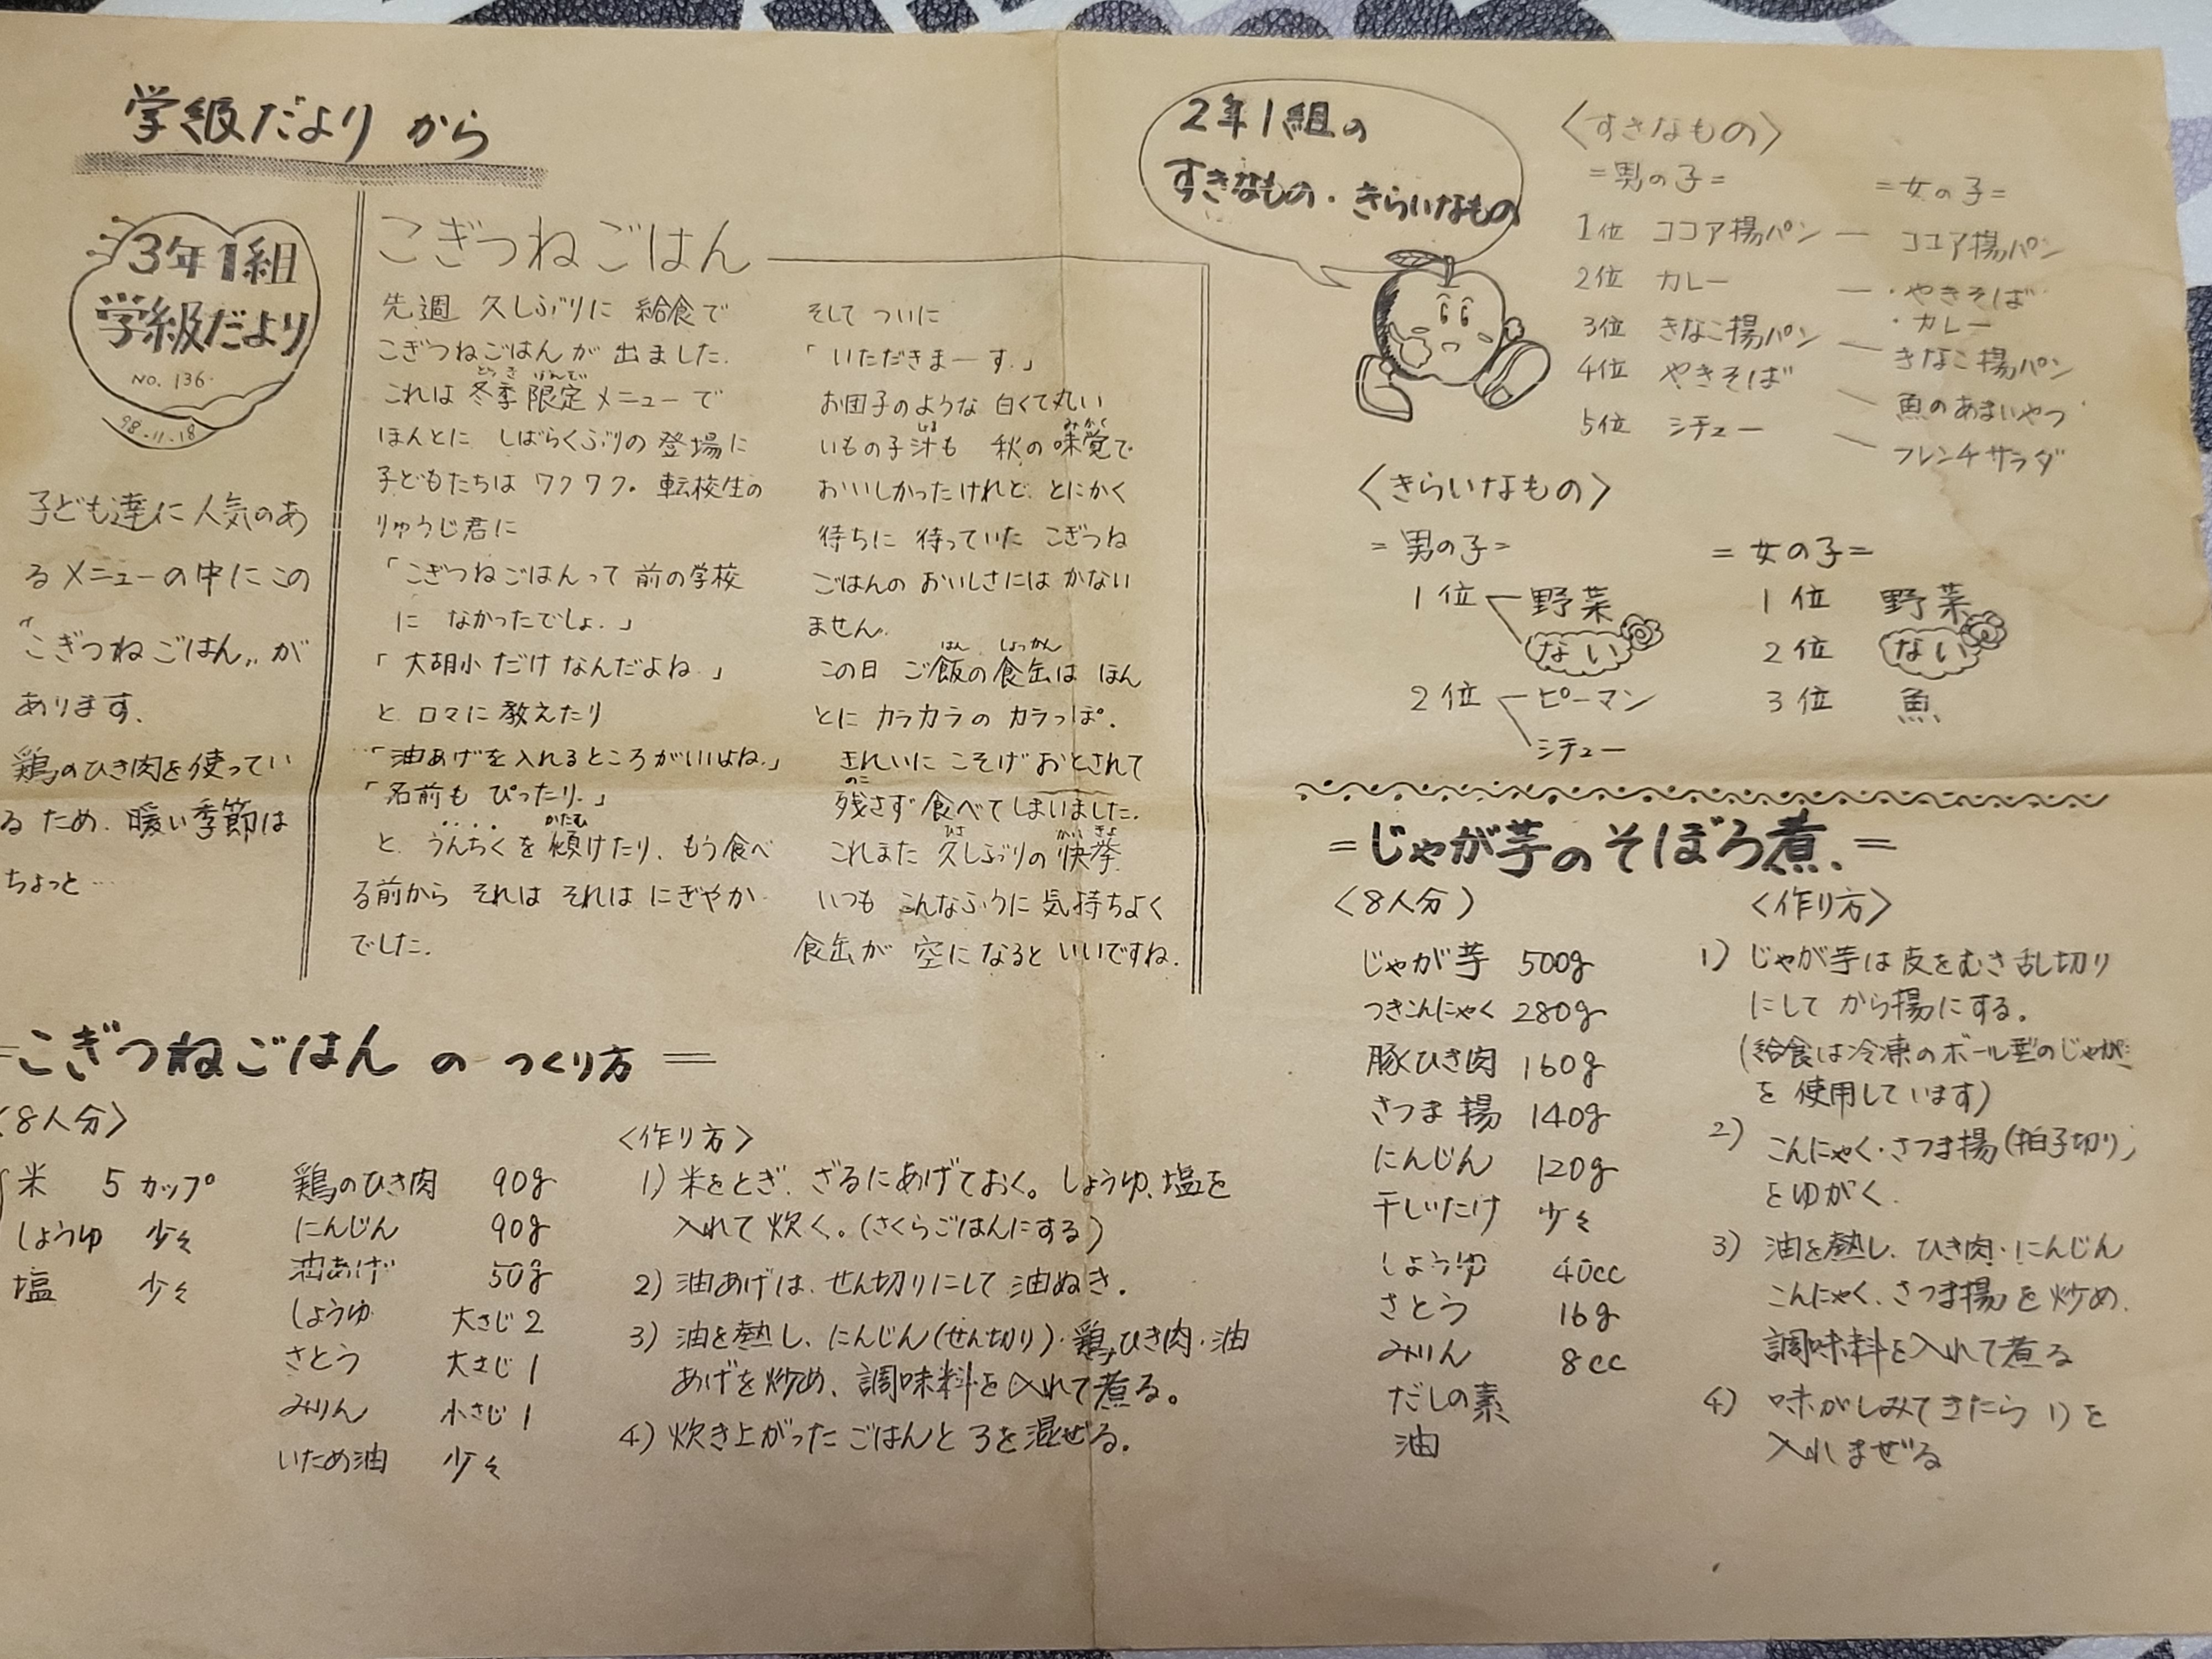 学級だより から
3年1組
学級だより
NO. 136
98.11.18
子ども達に人気のあ
るメニューの中にこの
"こぎつねごはん" が
あります.
鶏のひき肉を使ってい
る ため. 暖い季節は
ちょっと…
こぎつねごはん
先週 久しぶりに 給食で
こぎつねごはんが 出ました.
とうき げんてい
これは 冬季 限定 メニューで
ほんとに しばらくぶりの 登場に
子どもたちは ワクワク。転校生の
りゅうじ君に
「こぎつねごはんって 前の学校
に なかったでしょ.」
「大胡小 だけ なんだよね.」
と 口々に 教えたり
「油あげを入れるところがいいよね.」
「名前も ぴったり.」
かたむ
と. うんちくを 傾けたり、もう食べ
る前から それは それは にぎやか
でした.
そして ついに
「いただきまーす.」
お団子のような 白くて丸い
しる みかく
いもの子汁も 秋の味覚で
おいしかったけれど とにかく
待ちに 待っていた こぎつね
ごはんの おいしさには かない
ません.
はん しょっかん
この日 ご飯の食缶は ほん
とに カラカラの カラっぽ.
きれいに こそげおとされて
のこ
残さず 食べてしまいました.
ひさ かいきょ
これまた 久しぶりの 快挙
いつも こんなふうに 気持ちよく
食缶が 空に なると いいですね.
=こぎつねごはん の つくり方=
〈8人分〉
米 5カップ
しょうゆ 少々
塩 少々
鶏のひき肉 90g
にんじん 90g
油あげ 50g
しょうゆ 大さじ2
さとう 大さじ1
みりん 小さじ1
いため油 少々
〈作り方〉
1) 米をとぎ、ざるにあげておく。しょうゆ、塩を
入れて 炊く。(さくらごはんにする)
2) 油あげは、せん切りにして 油ぬき.
3) 油を熱し、にんじん(せん切り)・鶏ひき肉・油
あげを炒め、調味料を入れて煮る。
4) 炊き上がった ごはんと 3を混ぜる.
2年1組の
すきなもの・きらいなもの
〈すきなもの〉
=男の子= =女の子=
1位 ココア揚パン ― ココア揚パン
2位 カレー ― ・やきそば
・カレー
3位 きなこ揚パン ― きなこ揚パン
4位 やきそば ― 魚のあまいやつ
5位 シチュー ― フレンチサラダ
〈きらいなもの〉
=男の子= =女の子=
1位 野菜 1位 野菜
ない 2位 ない
2位 ピーマン 3位 魚
シチュー
=じゃが芋のそぼろ煮.=
〈8人分〉
じゃが芋 500g
つきこんにゃく 280g
豚ひき肉 160g
さつま揚 140g
にんじん 120g
干しいたけ 少々
しょうゆ 40cc
さとう 16g
みりん 8cc
だしの素
油
〈作り方〉
1) じゃが芋は皮をむき乱切り
にして から揚にする.
(給食は冷凍のボール型のじゃが
を 使用しています)
2) こんにゃく・さつま揚(拍子切り)
をゆがく.
3) 油を熱し、ひき肉・にんじん
こんにゃく、さつま揚を炒め.
調味料を入れて煮る
4) 味がしみてきたら 1)を
入れまぜる